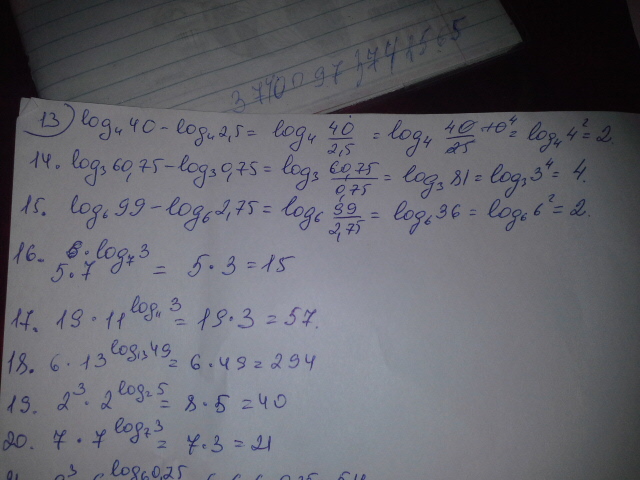 13) log₄40 - log₄2,5 = log₄ 40/2,5 = log₄ 40/25 = log₄4² = 2.
14. log₃60,75 - log₃0,75 = log₃ 60,75/0,75 = log₃81 = log₃3⁴ = 4.
15. log₆99 - log₆2,75 = log₆ 99/2,75 = log₆36 = log₆6² = 2.
16. 5·7^log₇3 = 5·3 = 15
17. 19·11^log₁₁3 = 19·3 = 57.
18. 6·13^log₁₃49 = 6·49 = 294
19. 2³·2^log₂5 = 8·5 = 40
20. 7·7^log₇3 = 7·3 = 21